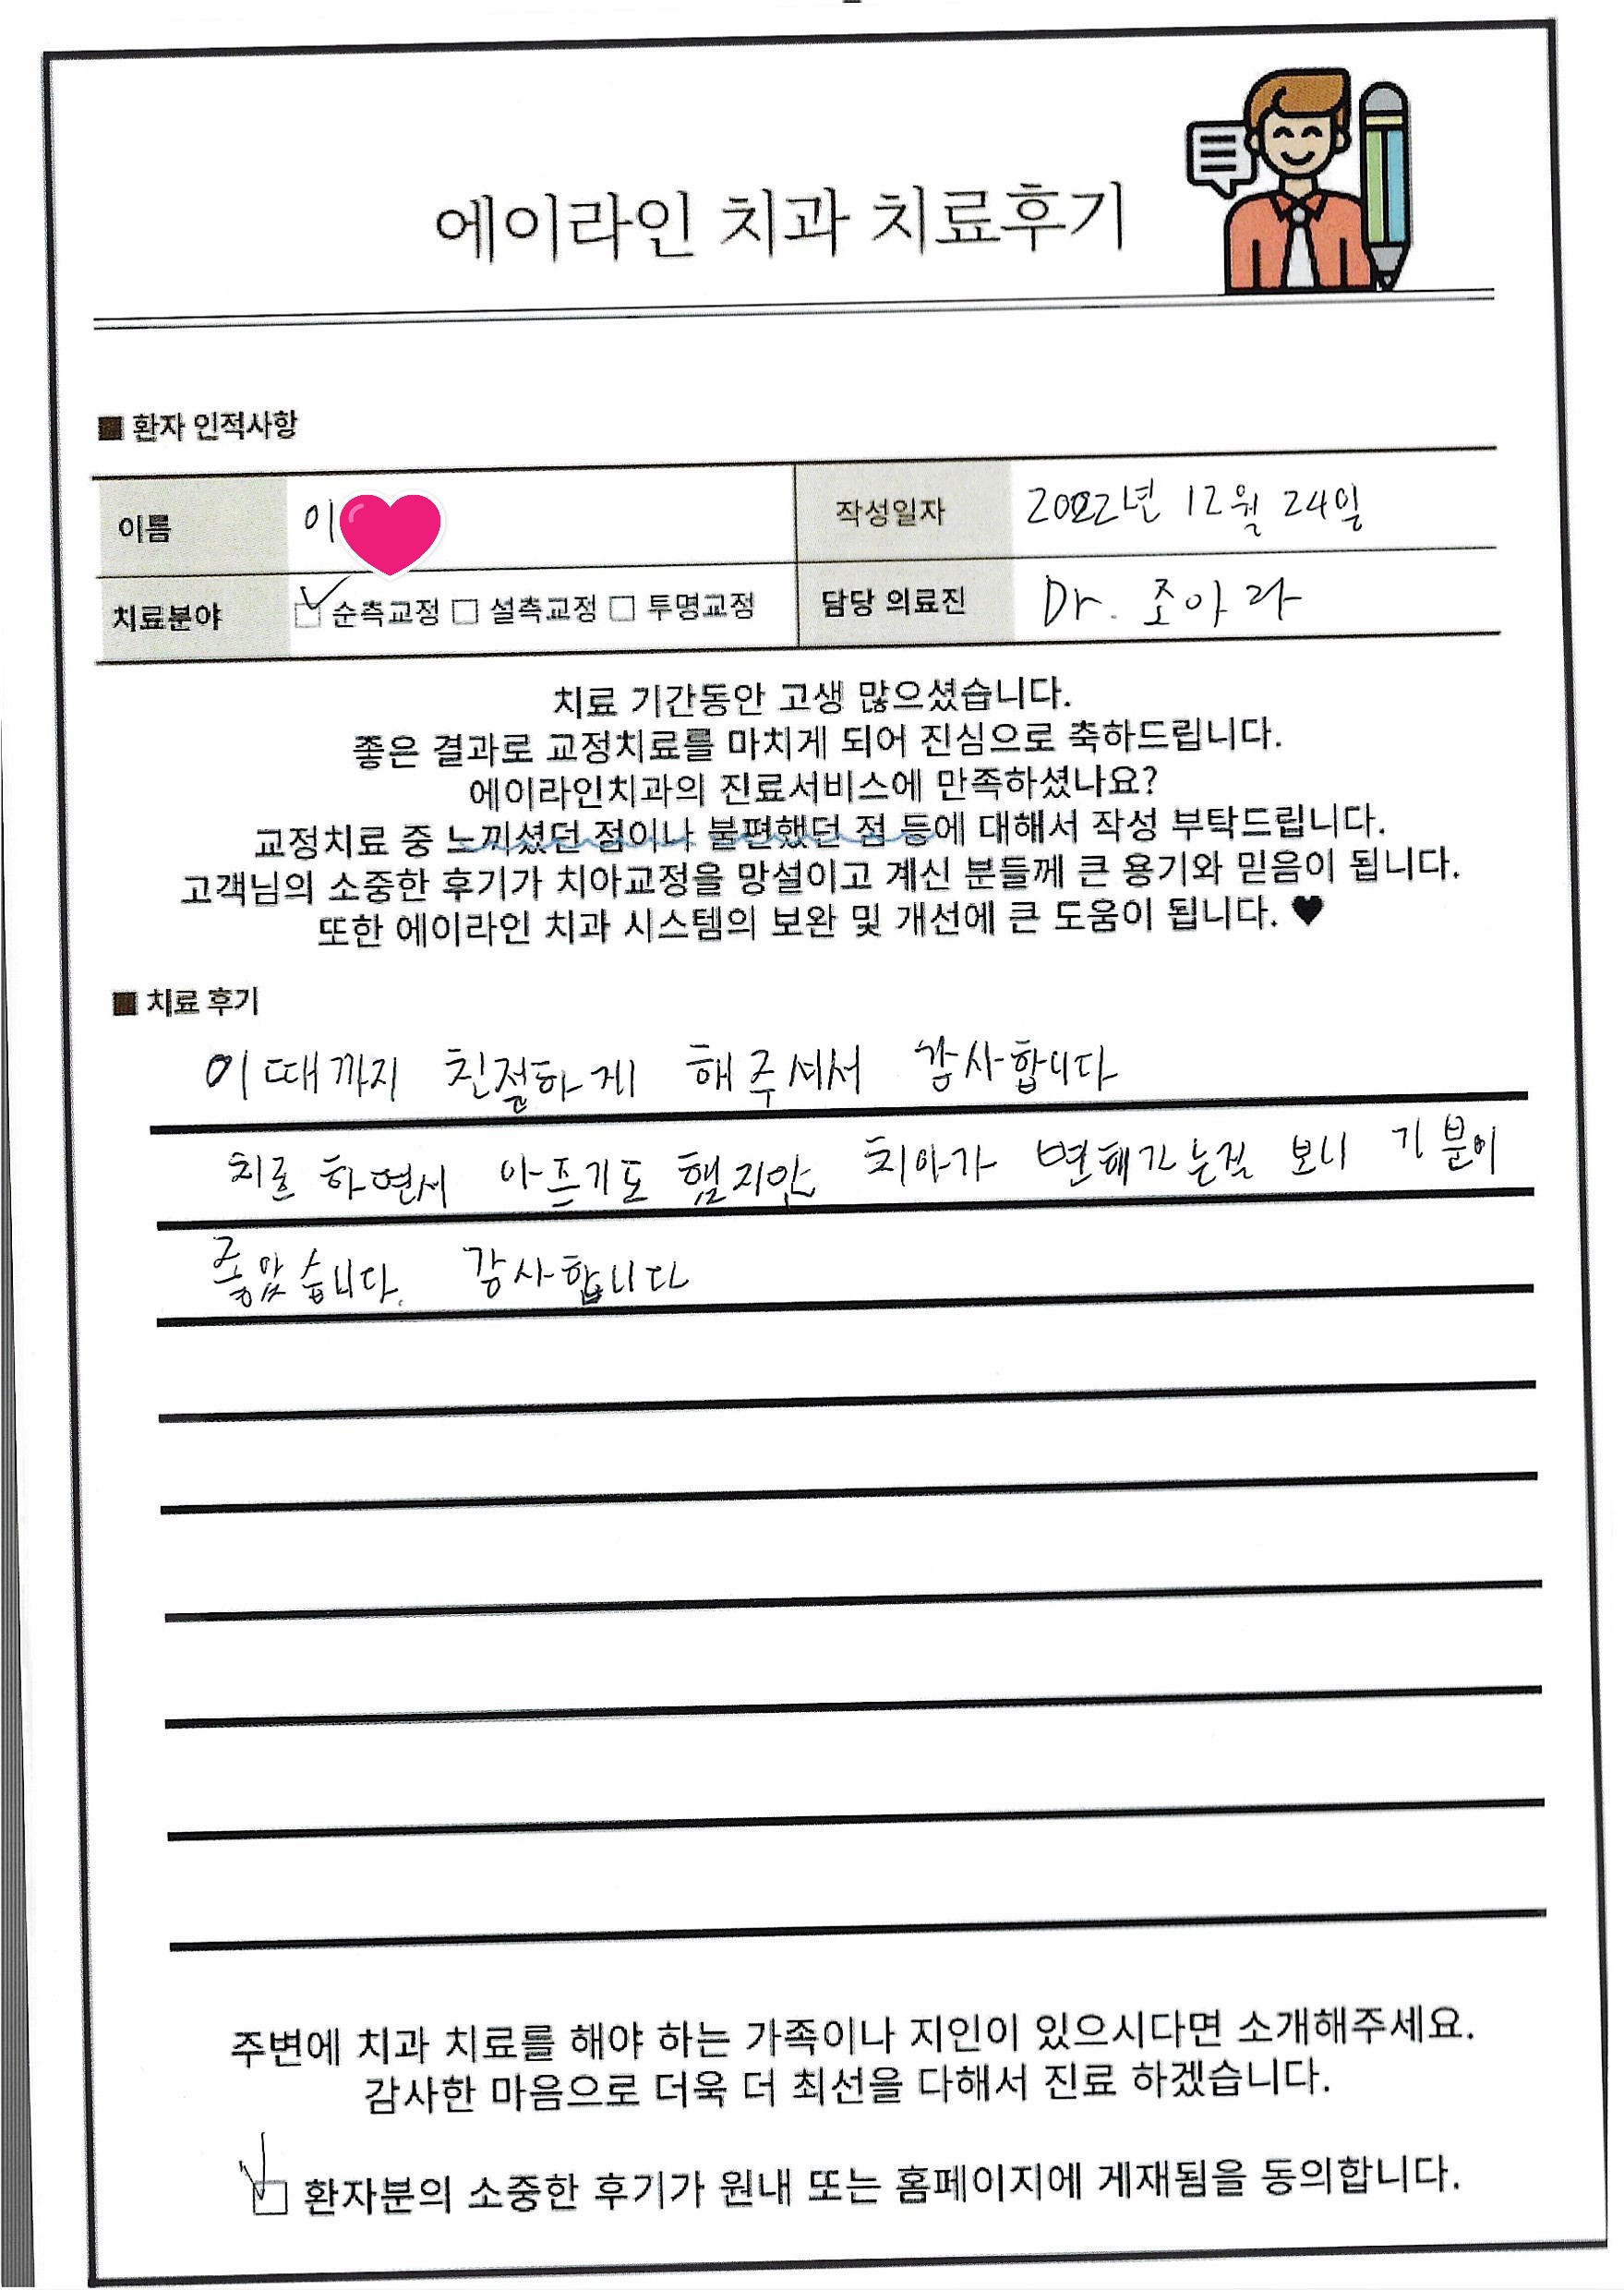 에이라인 치과 치료후기
■ 환자 인적사항
이름 이 작성일자 2022년 12월 24일
치료분야 ☑ 순측교정 □ 설측교정 □ 투명교정 담당 의료진 Dr. 조아라
치료 기간동안 고생 많으셨습니다.
좋은 결과로 교정치료를 마치게 되어 진심으로 축하드립니다.
에이라인치과의 진료서비스에 만족하셨나요?
교정치료 중 느끼셨던 점이나 불편했던 점 등에 대해서 작성 부탁드립니다.
고객님의 소중한 후기가 치아교정을 망설이고 계신 분들께 큰 용기와 믿음이 됩니다.
또한 에이라인 치과 시스템의 보완 및 개선에 큰 도움이 됩니다. ♥
■ 치료 후기
이때까지 친절하게 해주셔서 감사합니다
치료 하면서 아프기도 했지만 치아가 변해가는걸 보니 기분이
좋았습니다. 감사합니다
주변에 치과 치료를 해야 하는 가족이나 지인이 있으시다면 소개해주세요.
감사한 마음으로 더욱 더 최선을 다해서 진료 하겠습니다.
☑ 환자분의 소중한 후기가 원내 또는 홈페이지에 게재됨을 동의합니다.